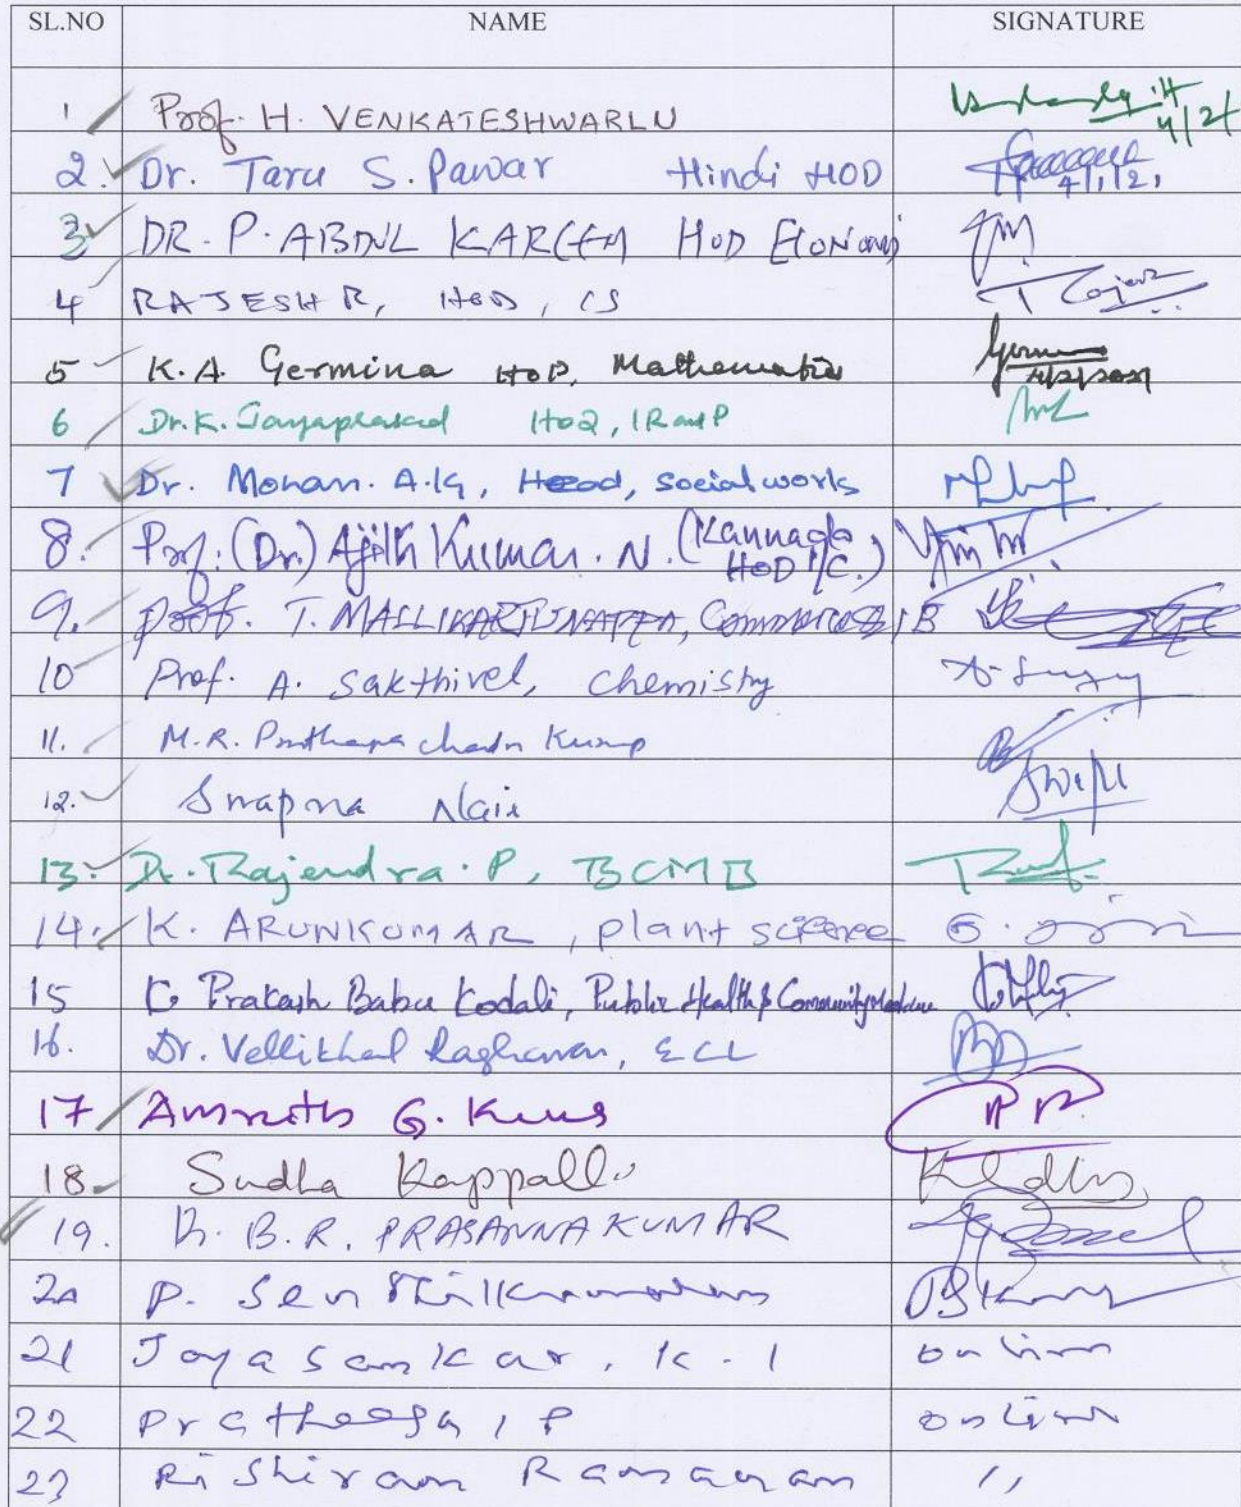 SL.NO NAME SIGNATURE
1 Prof. H. VENKATESHWARLU
2. Dr. Taru S. Pawar Hindi HOD 4/1/21
3 DR. P. ABDUL KAREEM HOD
4 RAJESH R, HOD, CS
5 K.A. Germina HOD, Mathematics
6 Dr. K. Jayaprasad HOD, IR and P
7 Dr. Mohan. A.K, Head, social work
8. Prof: (Dr.) Ajith Kumar. N. (Kannada
HOD I/C.)
9. Prof. T. MALLIKARJUNAPPA, Commerce & IB
10 Prof. A. Sakthivel, Chemistry
11. M.R.
12. Swapna Nair
13. Dr. Rajendra. P, BCMB
14. K. ARUNKUMAR, plant science
15 Prakash Babu Kodali, Public Health & Community Medicine
16. Dr. Vellikkeel Raghavan, ECL
17 Amruth G. Kumar
18. Sudha Kappalli
19. B. R. PRASANNA KUMAR
20 P. Senthilkumaran
21 Jayasankar. K. I online
22 Pratheesh, P online
23 Rishiram Ramanan "